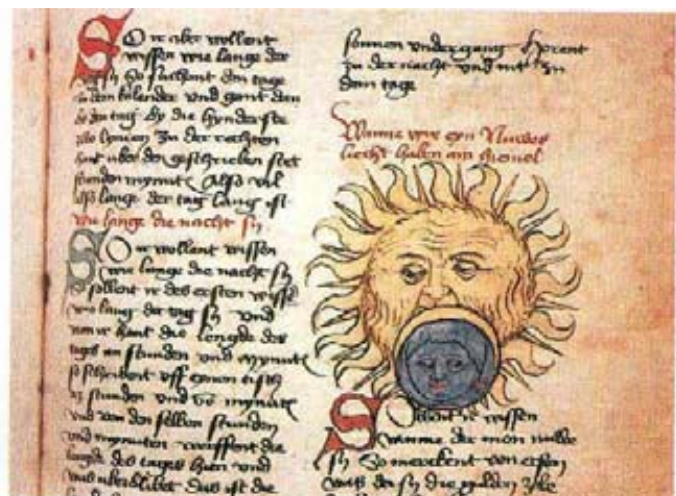 So ir aber wollent
wyssen wie lange der
tag sy So suchent den tage
in dem kalender und gant dan
by den tag by die hynderste
zwo lynien zu der rechten
hant uber den geschrieben stet
stunden mynut Also vil
also lange der tag lang ist
wie lange die nacht sy
So ir wollent wissen
wie lange die nacht sy
so sollent ir des ersten wyssen
wie lang der tag sy und
wan ir hant die lengde des
tages an stunden und mynut
so schribent uff
stunden und mynut
und von den selben stunden
und mynuten werffent die
lengde des tages hien und
was uberblibet das ist die
sonnen undergang horent
zu der nacht und nit zu
dem tage
Wanne wir eyn Nuwes
liecht haben am hiemel
Sollent ir wyssen
wanne der mon nuwe
sy So merckent von ersten
was den sy die gulden zale